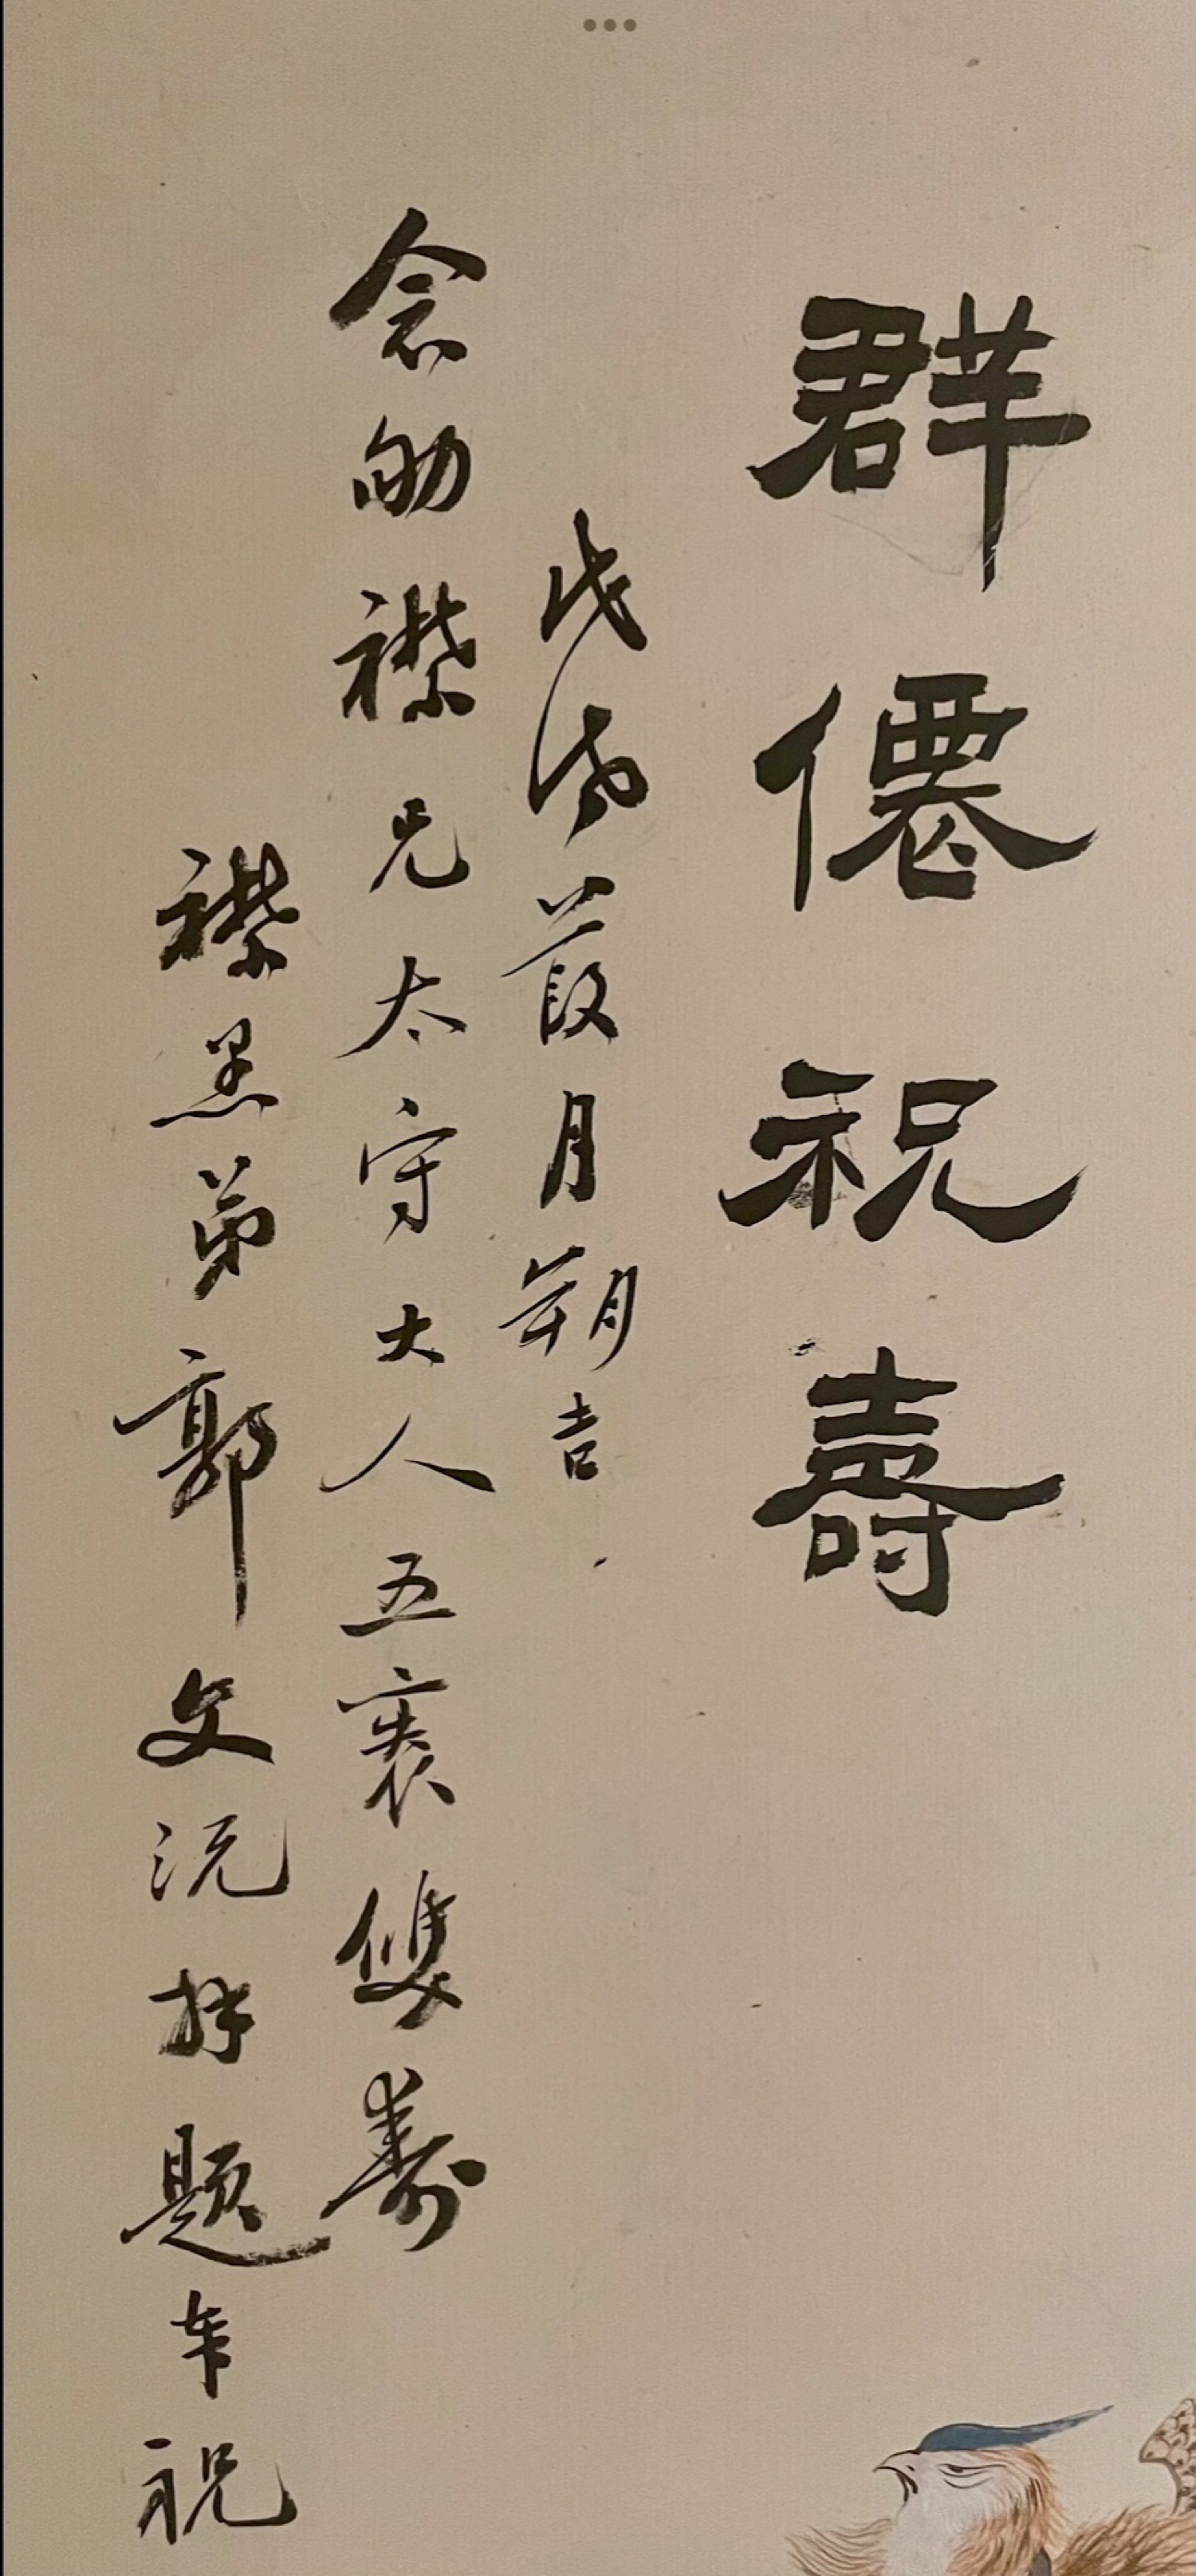 群僊祝壽
戊戌葭月朔吉
念劬襟兄太守大人五袠雙壽
襟愚弟郭文沅拜題并祝